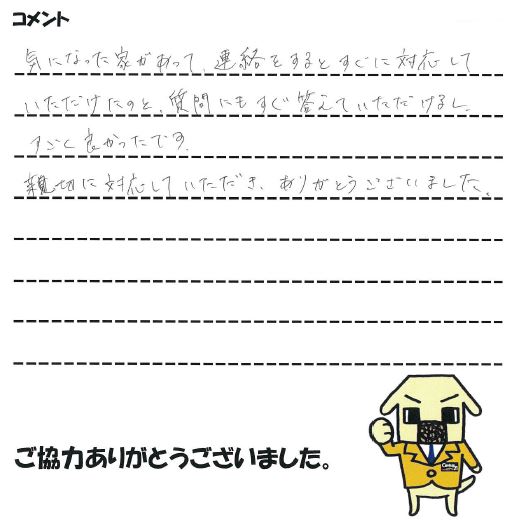 コメント
気になった家があって、連絡をするとすぐに対応して
いただけたのと、質問にもすぐ答えていただけるし、
すごく良かったです。
親切に対応していただき、ありがとうございました。
ご協力ありがとうございました。